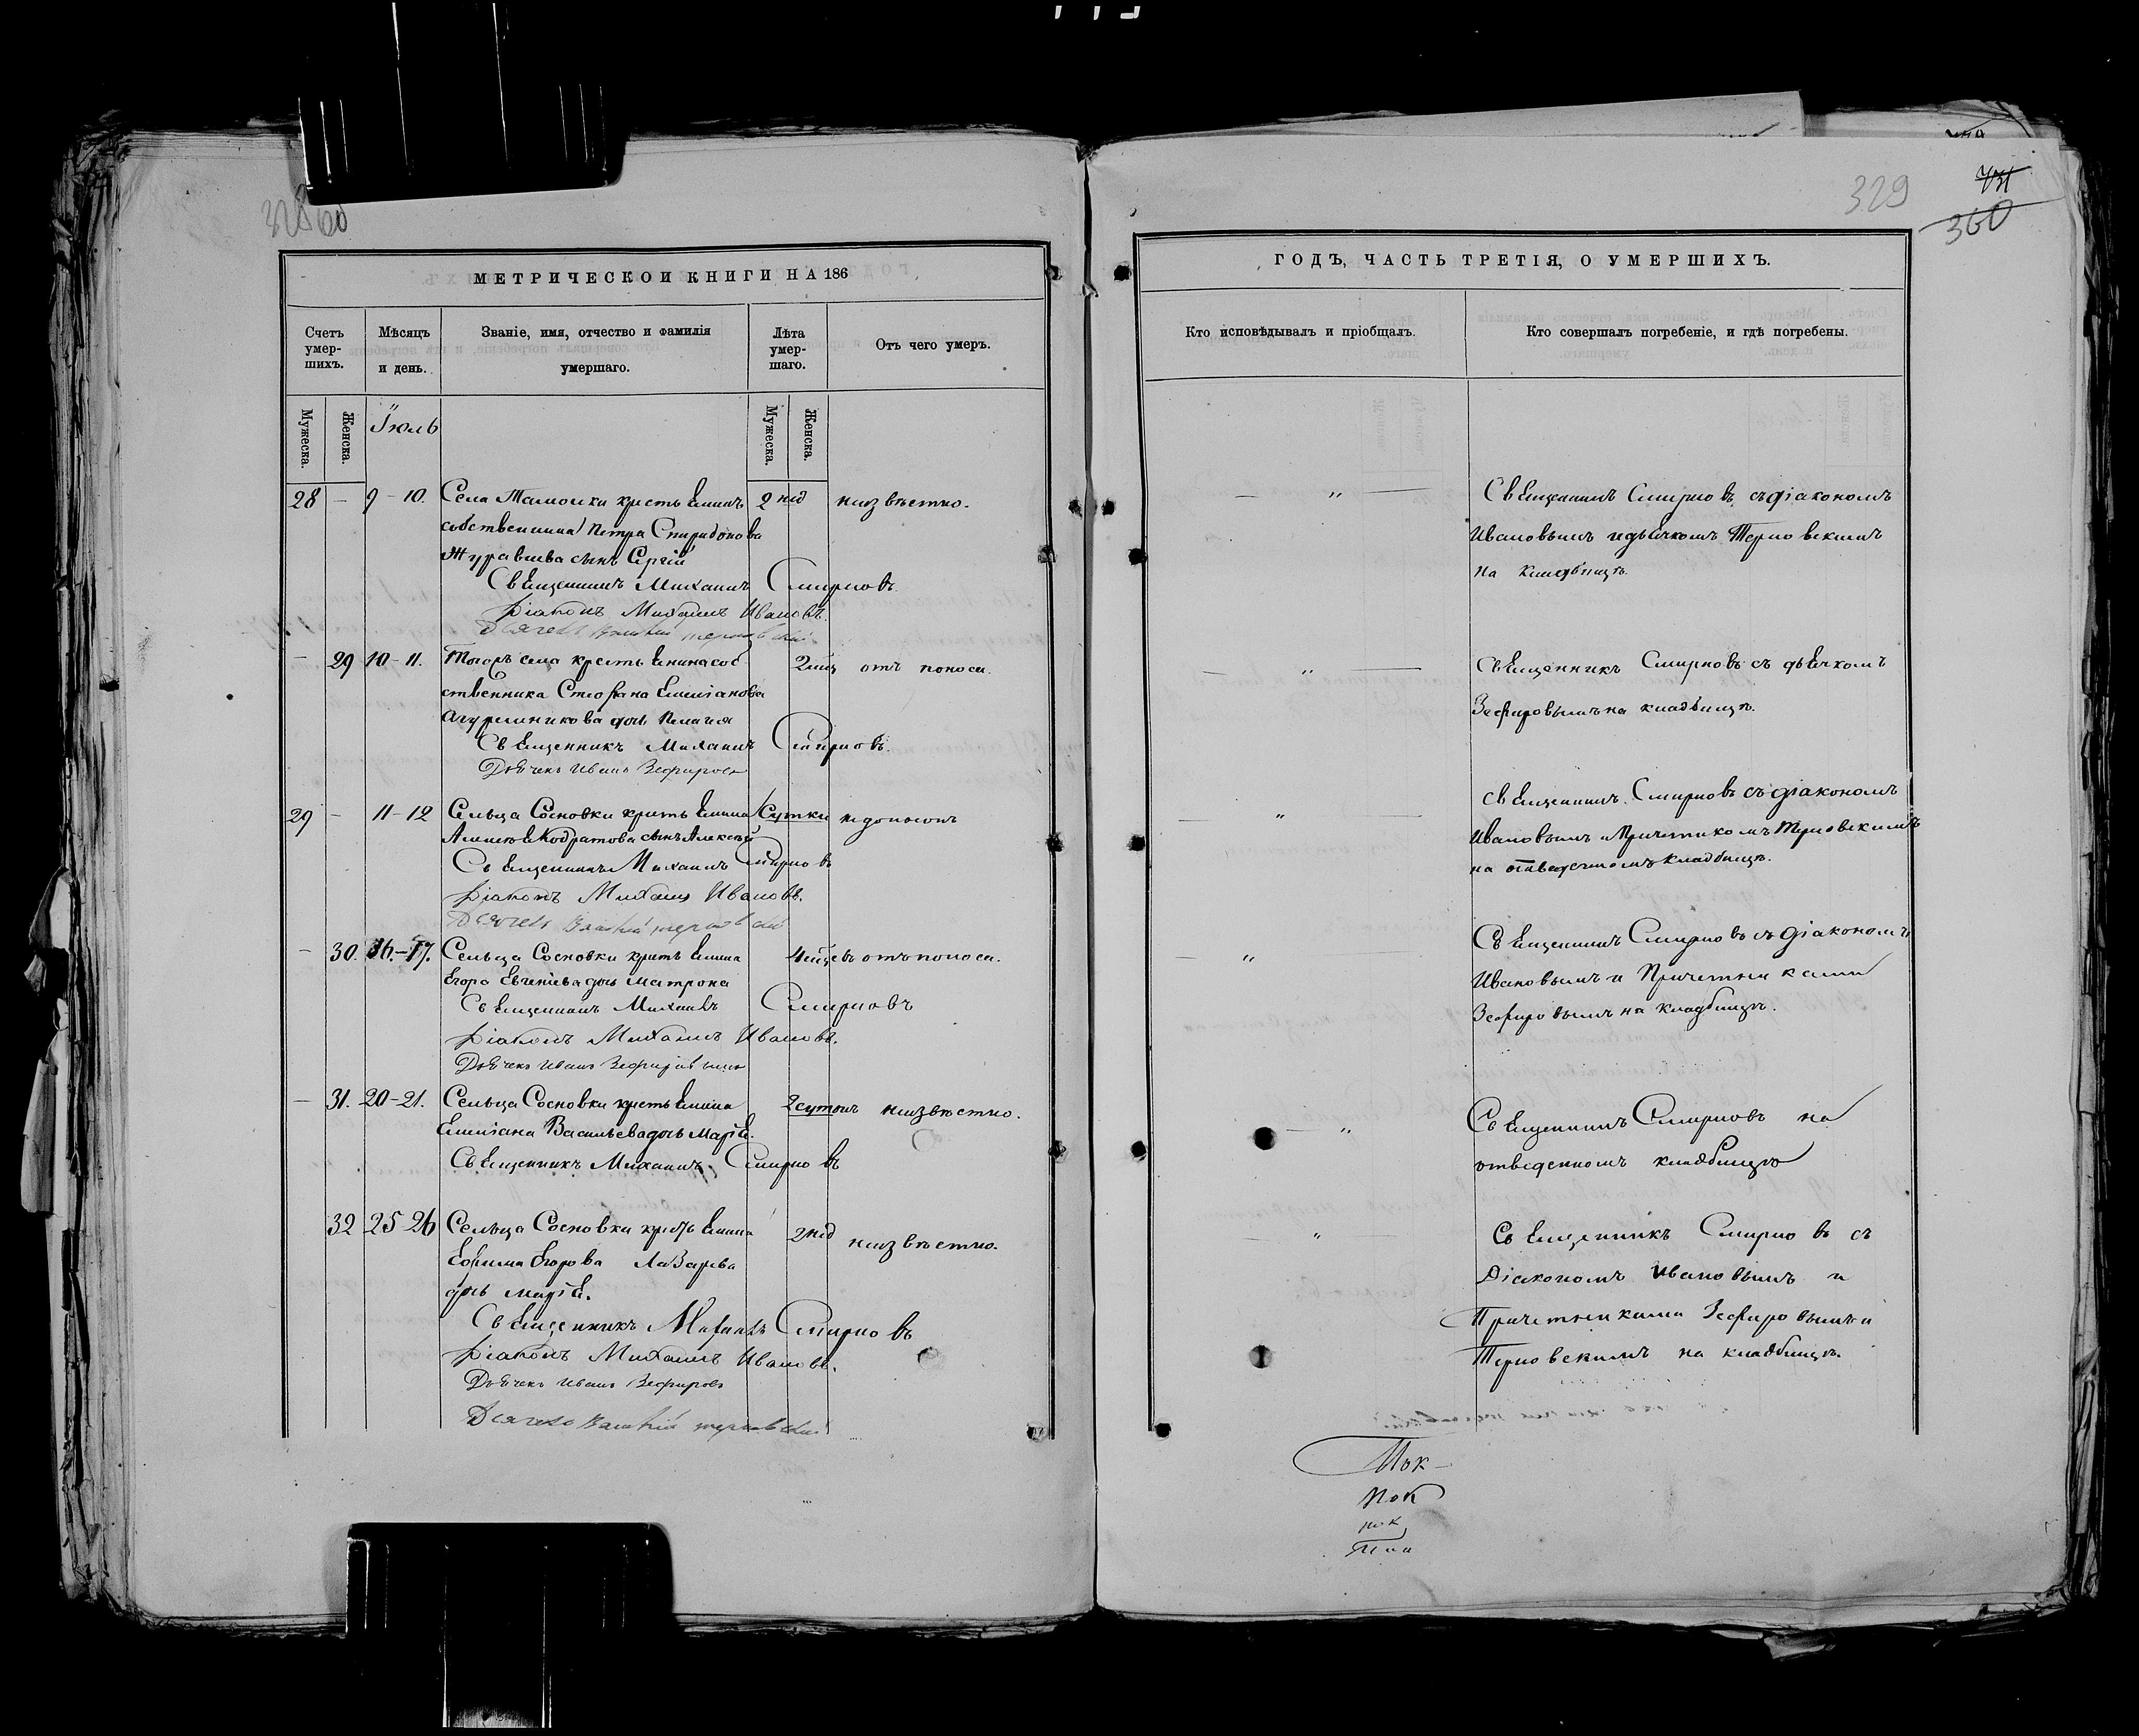 329
360
МЕТРИЧЕСКОЙ КНИГИ НА 186
Счетъ умер-шихъ.
Мѣсяцъ и день.
Званіе, имя, отчество и фамилія умершаго.
Лѣта умер-шаго.
Отъ чего умеръ.
Мужеска.
Женска.
Іюль
Мужеска.
Женска.
28 — 9-10. Села крестьянинъ 2 нед неизвѣстно.
собственника Петра Спиридонова
Журавлева сынъ Сергій
Священникъ Михаилъ Смирновъ
Діаконъ Михаилъ Ивановъ.
— 29 10-11. Тогожъ села крестьянина соб отъ поноса.
ственника Стефана Емелianова
дочь Пелагія
Священникъ Михаилъ Смирновъ
Дьячекъ Иванъ Зефировъ
29 — 11-12 Сельца Сосновки крестьянина Сутки
Кодратова сынъ Алексѣй
Священникъ Михаилъ Смирновъ
Діаконъ Михаилъ Ивановъ.
— 30. 16.-17. Сельца Сосновки крестьянина отъ поноса.
Егора Евгеніева дочь Матрона
Священникъ Михаилъ Смирновъ
Діаконъ Михаилъ Ивановъ.
Дьячекъ Иванъ Зефировъ
— 31. 20-21. Сельца Сосновки крестьянина 2 сутокъ неизвѣстно.
Емеліана Васильева дочь Марія.
Священникъ Михаилъ Смирновъ
32 25 26 Сельца Сосновки крестьянина 2 нед неизвѣстно.
Ефима Егорова Лазарева
дочь Марія.
Священникъ Михаилъ Смирновъ
Діаконъ Михаилъ Ивановъ.
Дьячекъ Иванъ Зефировъ
ГОДЪ, ЧАСТЬ ТРЕТІЯ, О УМЕРШИХЪ.
Кто исповѣдывалъ и пріобщалъ.
Кто совершалъ погребеніе, и гдѣ погребены.
— " — Священникъ Смирновъ съ діакономъ
Ивановымъ и дьячкомъ Терновскимъ
на кладбищѣ.
— " — Священникъ Смирновъ съ дьячкомъ
Зефировымъ на кладбищѣ.
— " — Священникъ Смирновъ съ діакономъ
Ивановымъ и Причетникомъ Терновскимъ
на отведенномъ кладбищѣ.
— " Священникъ Смирновъ съ діакономъ
Ивановымъ и Причетниками
Зефировымъ на кладбищѣ.
— " Священникъ Смирновъ на
отведенномъ кладбищѣ
— " Священникъ Смирновъ съ
Діакономъ Ивановымъ и
Причетниками Зефировымъ и
Терновскимъ на кладбищѣ.